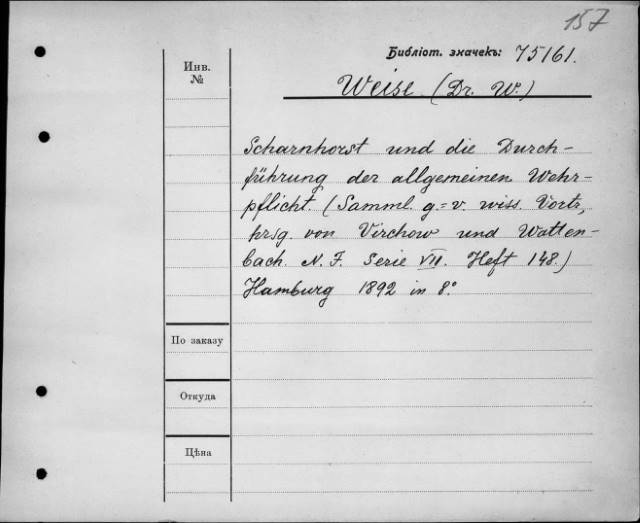 157
Библіот. значекъ: 75161.
Инв.
№
Weise (Dr. W.)
Scharnhorst und die Durch-
führung der allgemeinen Wehr-
pflicht. (Samml. g.=v. wiss. Vortr,
hrsg. von Virchow und Watten-
bach. N. F. Serie VII. Heft 148.)
Hamburg 1892 in 8º
По заказу
Откуда
Цѣна